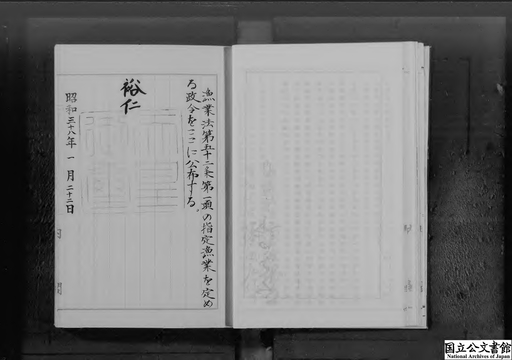 漁業法第五十二条第一項の指定漁業を定め
る政令をここに公布する。
裕仁
昭和三十八年一月二十二日
国立公文書館
National Archives of Japan